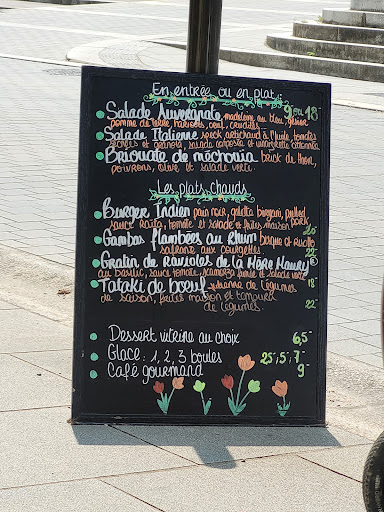 En entrée ou en plat :
Salade Auvergnate madeleine au bleu, grenier 9 ou 18
pomme de terre, haricots, oeuf, crudités
Salade Italienne speck artichaud à l'huile, tomates
séchées et granola, salade composée et vinaigrette citronnée
Briouate de méchouia brick de thon,
poivrons, olive et salade verte.
Les plats chauds
Burger Indien pain noir, galette biryani, pulled pork,
sauce Raïta, tomate et salade et frites maison
Gambas flambées au Rhum bisque et risotto
safrané aux courgettes
Gratin de Ravioles de la Mère Maury®
au basilic, sauce tomate, scamorza fumée et salade verte
Tataki de boeuf julienne de légumes 18
de saison, frites maison et tempura
de légumes. 22
Dessert vitrine au choix 6,5
Glace : 1, 2, 3 boules 2,5; 5; 7
Café gourmand 9